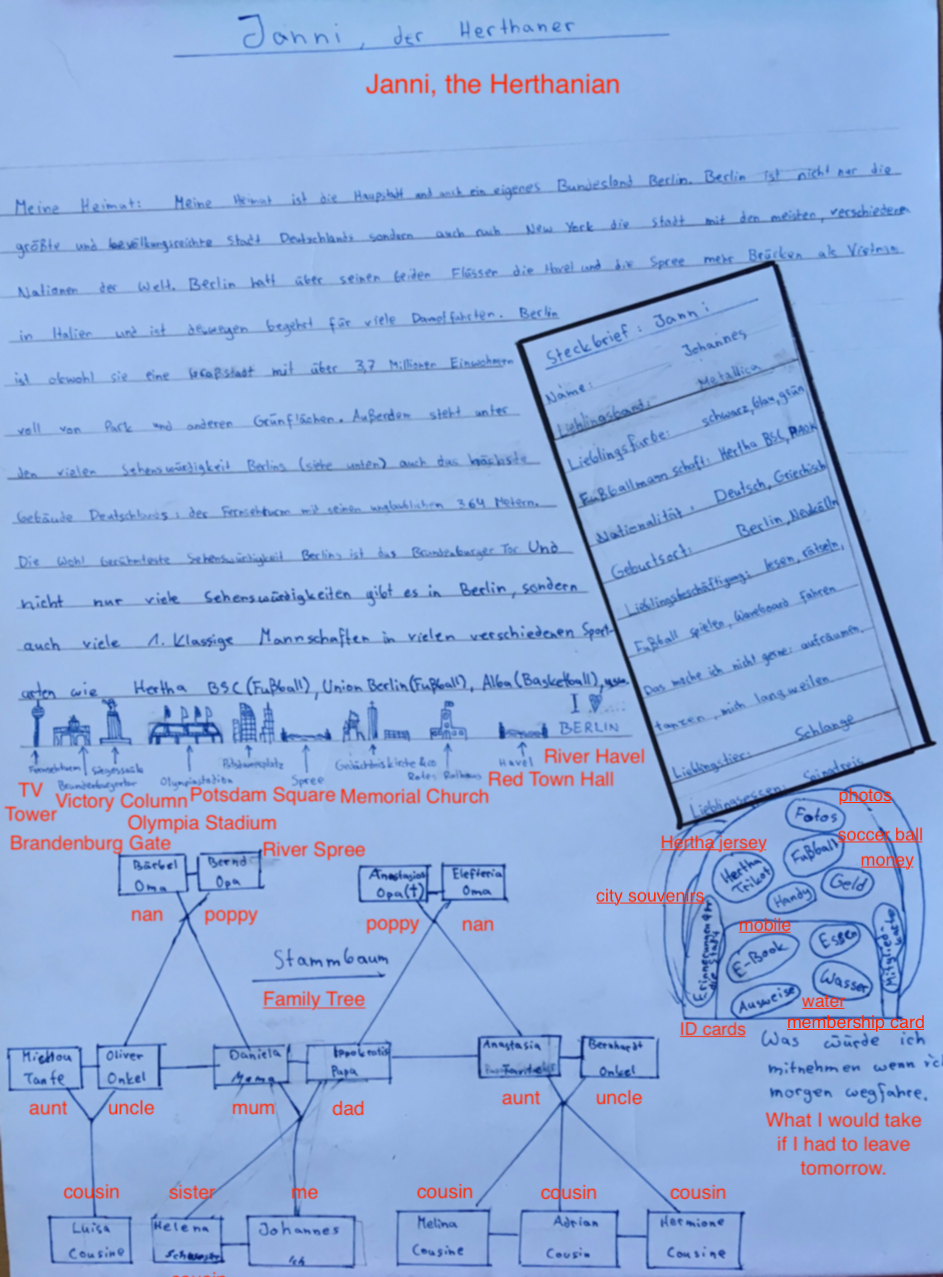 Janni, der Herthaner
Janni, the Herthanian
Meine Heimat: Meine Heimat ist die Haupstadt und auch ein eigenes Bundesland Berlin. Berlin ist nicht nur die
größte und bevölkungsreichte Stadt Deutschlands sondern auch nach New York die stadt mit den meisten, verschiedenen
Nationen der Welt. Berlin hatt über seinen beiden Flüssen die Havel und die Spree mehr Brücken als
in Italien und ist deswegen begehrt für viele Dampffahrten. Berlin
ist obwohl sie eine Großstadt mit über 3,7 Millionen Einwohnern
voll von Park und anderen Grünflächen. Außerdem steht unter
den vielen Sehenswürdigkeit Berlins (siehe unten) auch das höchste
Gebäude Deutschlands: der Fernsehturm mit seinen unglaublichen 364 Metern.
Die Wohl berühmteste Sehenswürdigkeit Berlins ist das Brandenburger Tor Und
nicht nur viele Sehenswürdigkeiten gibt es in Berlin, sondern
auch viele 1. Klassige Mannschaften in vielen verschiedenen Sport-
arten wie Hertha BSC (Fußball), Union Berlin (Fußball), Alba (Basketball), usw.
Steckbrief: Janni
Name: Johannes
Lieblingsband: Metallica
Lieblingsfarbe: schwarz, blau, grün
Fußballmannschaft: Hertha BSC, PAOK
Nationalität: Deutsch, Griechisch
Geburtsort: Berlin, Neukölln
Lieblingsbeschäftigung: lesen, rätseln,
Fußball spielen, Waveboard fahren
Das mache ich nicht gerne: aufräumen
tanzen, mich langweilen
Lieblingstier: Schlange
Lieblingsessen:
I
BERLIN
Fernsehturm
Brandenburgertor
Siegessäule
Olympiastation
Potsdamerplatz
Spree
Gedächtniskirche & co
Rotes Rathaus
Havel
TV
Tower
Brandenburg Gate
Victory Column
Olympia Stadium
Potsdam Square
River Spree
Memorial Church
Red Town Hall
River Havel
Bärbel
Oma
Bernd
Opa
Anastasios
Opa(†)
Elefteria
Oma
nan
poppy
poppy
nan
Stammbaum
Family Tree
Tante
Oliver
Onkel
Daniela
Mama
Papa
Anastasia
Bernhardt
Onkel
aunt
uncle
mum
dad
aunt
uncle
cousin
sister
me
cousin
cousin
cousin
Luisa
Cousine
Helena
Schwester
Johannes
Ich
Melina
Cousine
Adrian
Cousin
Hermione
Cousine
cousin
photos
Fotos
Hertha jersey
soccer ball
Fußball
money
Hertha
Trikot
Geld
city souvenirs
Handy
mobile
Erinnerungen an
die Stadt
E-Book
Essen
Mitglied-
Wasser
Ausweise
water
ID cards
membership card
Was würde ich
mitnehmen wenn ich
morgen wegfahre.
What I would take
if I had to leave
tomorrow.